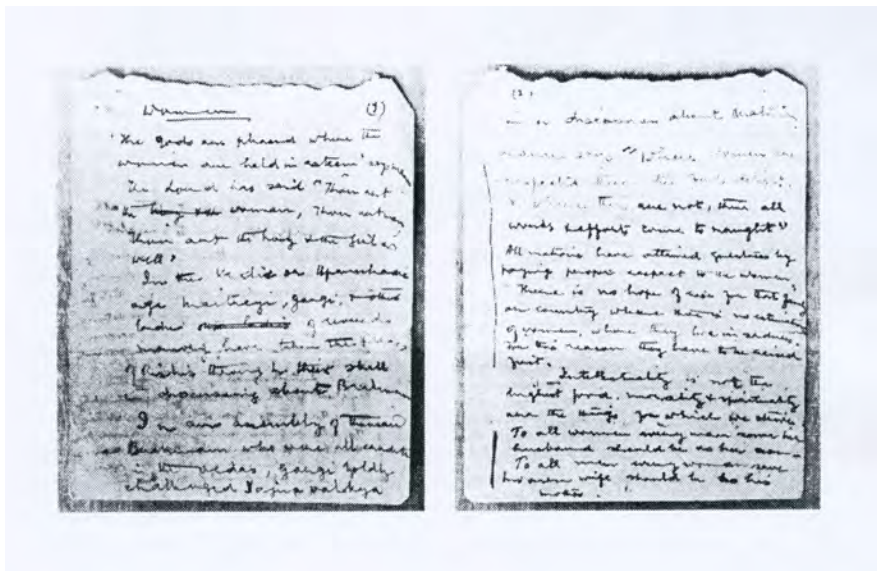 Women (1)
"The gods are pleased where the
women are held in esteem"
The Lord has said "Thou art
the woman, Thou art
Thou art the boy & the girl as
well"
In the Vedic or Upanishadic
age Maitreyi, Gargi, & other
ladies of
have taken the
of Rishis through their skill
in discussing about Brahman
In an assembly of thousand
Brahmans who were all
in the Vedas, Gargi boldly
challenged Yajnavalkya
(2)
in a discussion about
says "Where women are
respected there the
& where they are not, there all
works & efforts come to naught"
All nations have attained greatness by
paying proper respect to the women
There is no hope of rise for that family
or country where there is no estimation
of women, where they live in sadness.
For this reason they have to be raised
first.
Intellectuality is not the
highest good, morality & spirituality
are the things for which we strive
To all women every man save her
husband should be as her son.
To all men every woman save
his own wife should be as his
mother.